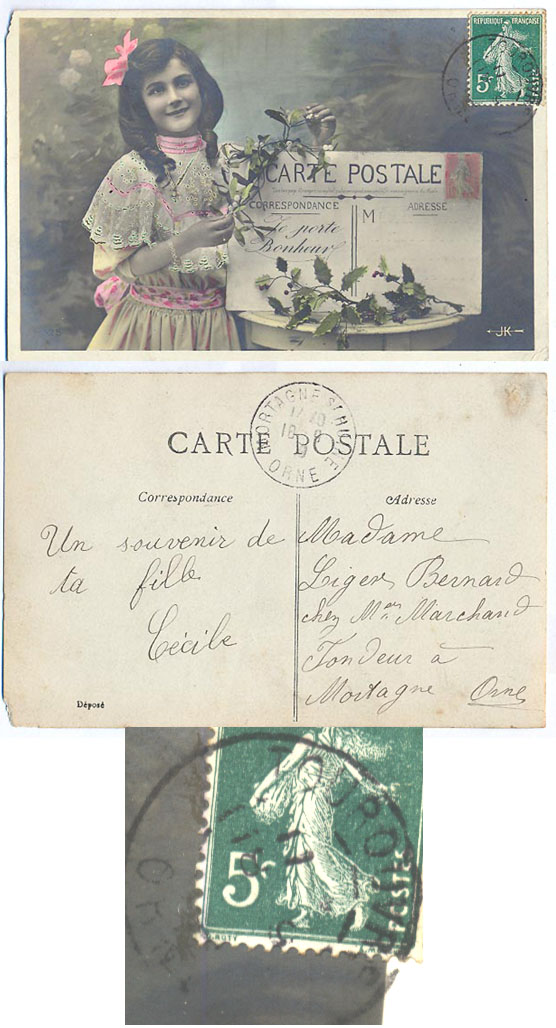 REPUBLIQUE FRANÇAISE
5c
POSTES
CARTE POSTALE
CORRESPONDANCE
M
ADRESSE
Je porte
Bonheur
JK
MORTAGNE S/ HUISNE
ORNE
CARTE POSTALE
Correspondance
Adresse
Un souvenir de
ta fille
Cécile
Madame
Liger Bernard
chez Mr Marchand
Fondeur à
Mortagne Orne
Déposé
5c
POSTES
TOUROUVRE